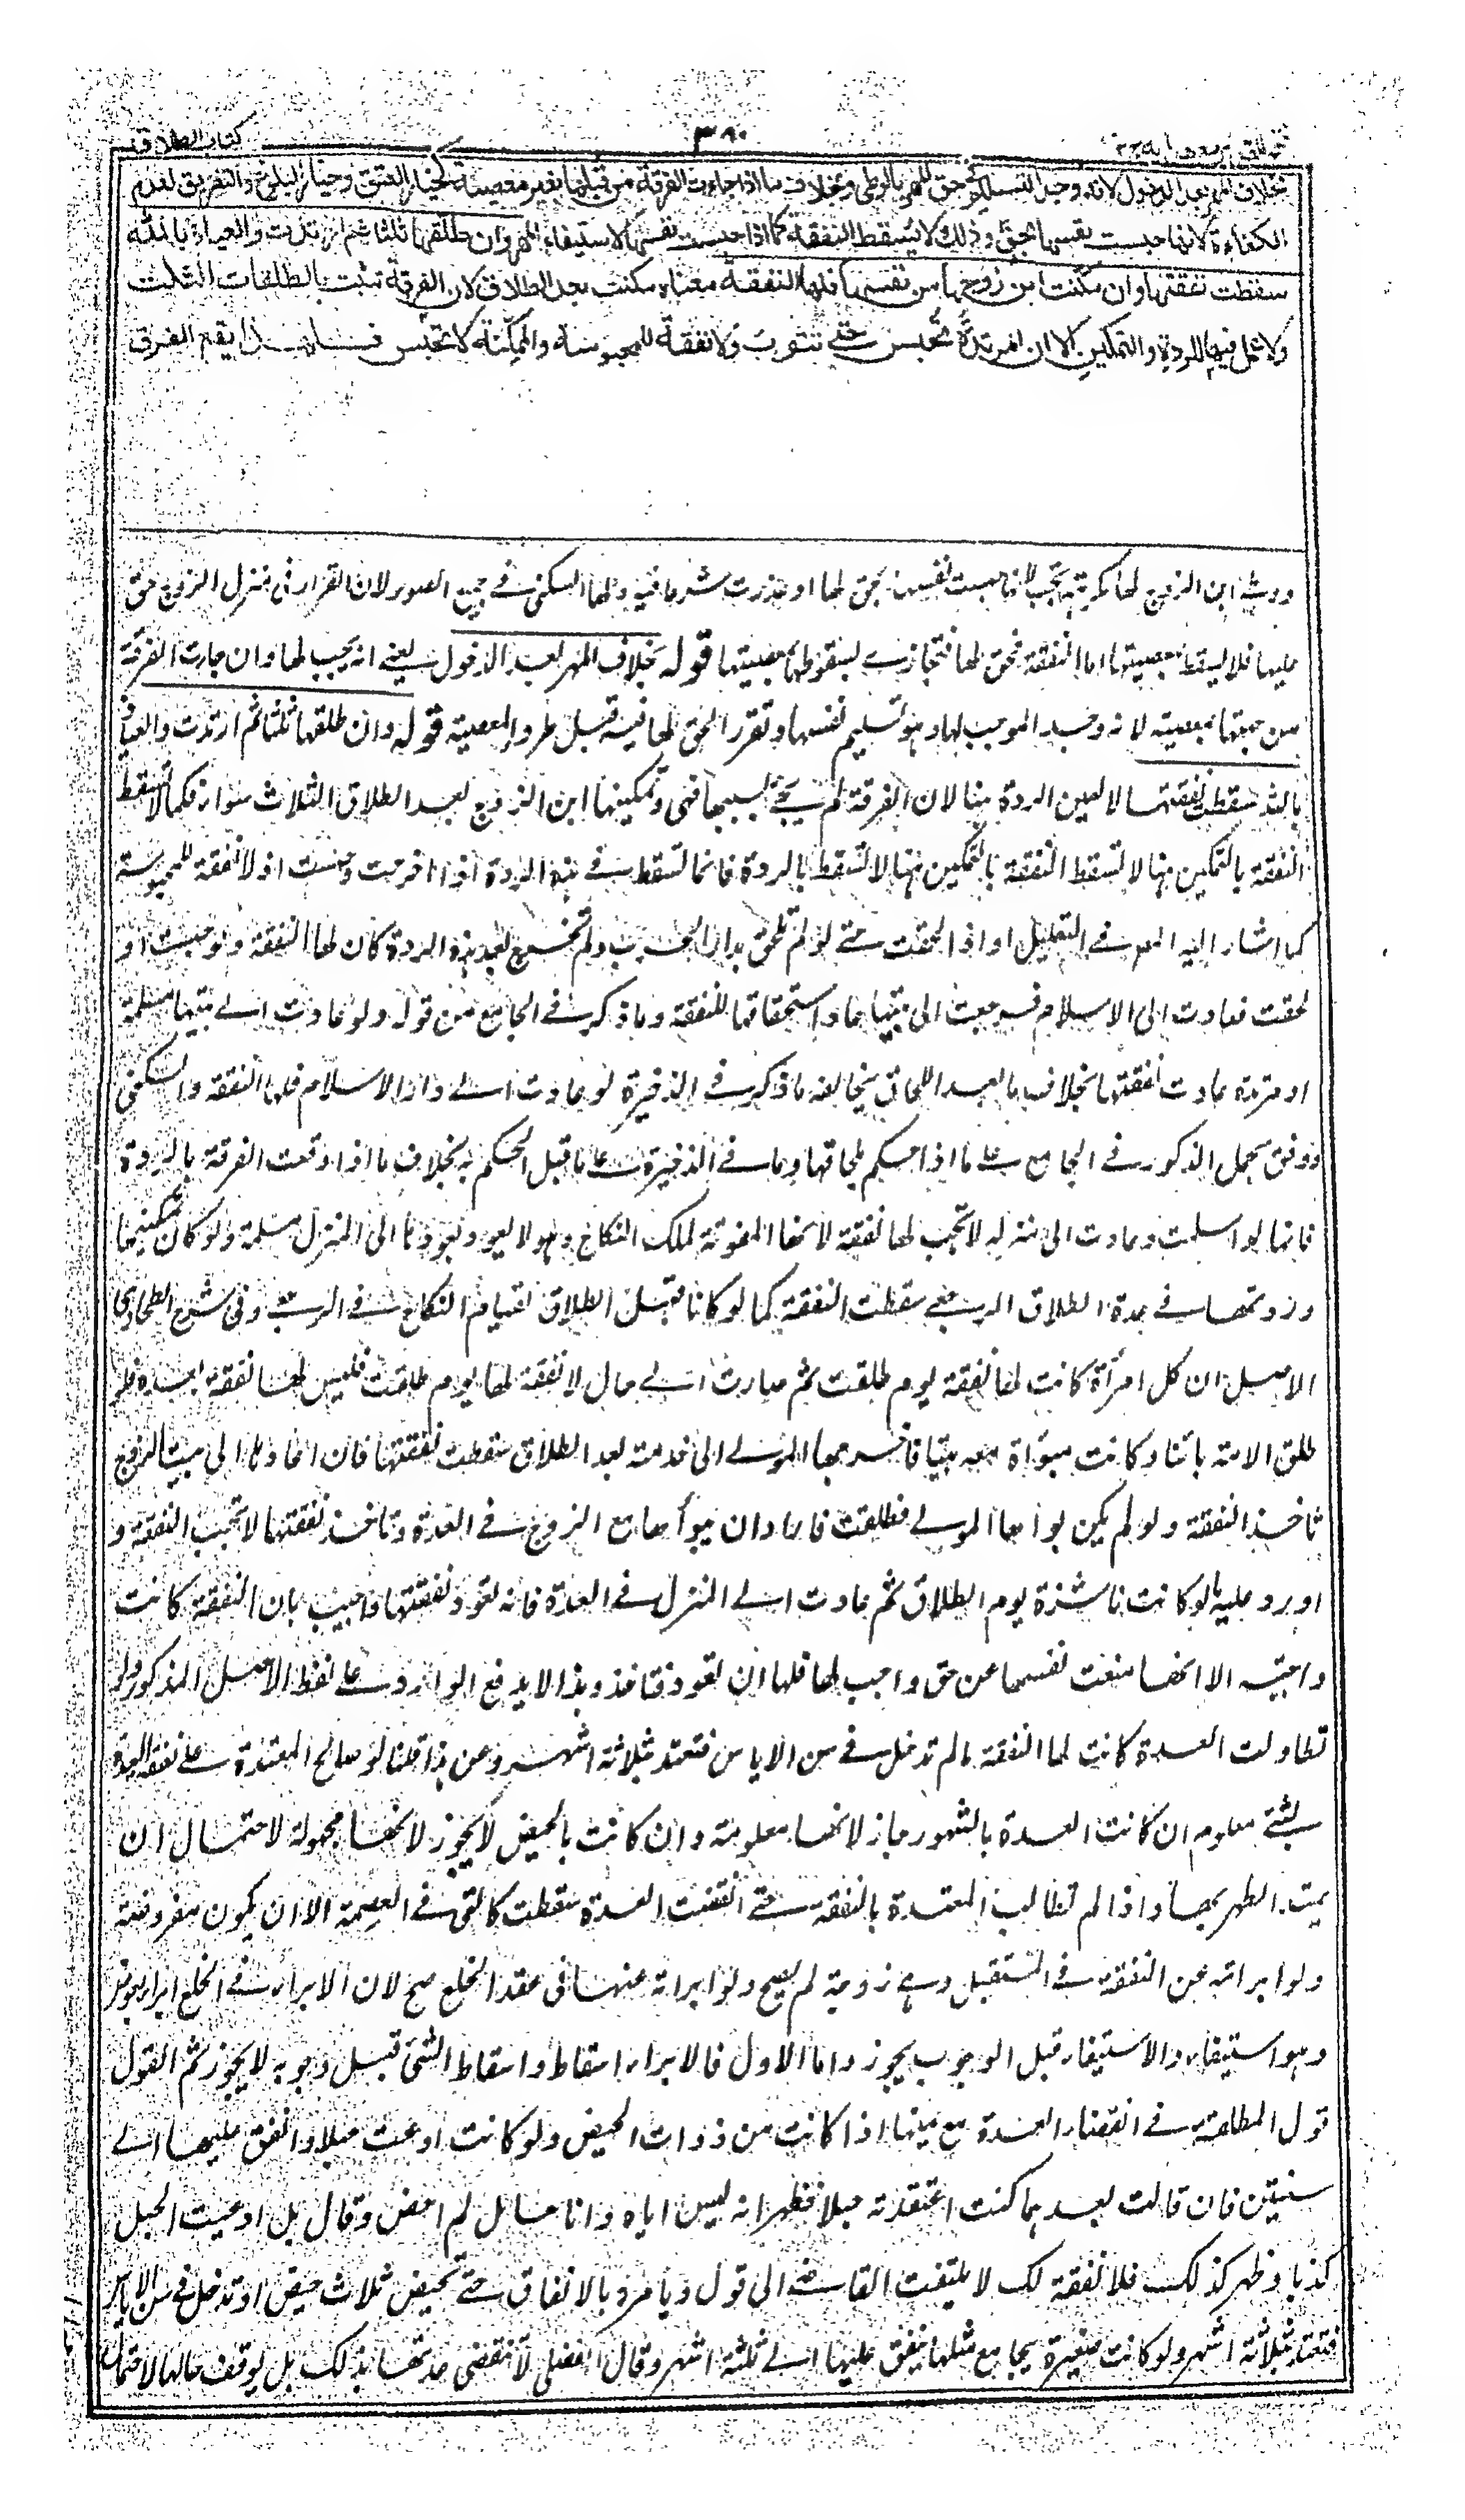 كتاب الطلاق
٣٨٠
بخلاف المهر بعد الدخول لانه وجد التسليم في حق المهر بالوطي وبخلاف ما اذا جاءت الفرقة من قبلها بغير معصية كخيار العتق وخيار البلوغ والتفريق لعدم
الكفاءة لانها حبست نفسها بحق وذلك لا يسقط النفقة كما اذا حبست نفسها لاستيفاء المهر وان طلقها ثلثا ثم ارتدت والعياذ بالله
سقطت نفقتها وان مكنت ابن زوجها من نفسها فلها النفقة معناه مكنت بعد الطلاق لان الفرقة تثبت بالطلقات الثلث
ولا عمل فيها للردة والتمكين الا ان المرتدة تحبس حتى تتوب ولا نفقة للمحبوسة والممكنة لا تحبس فلهذا يقع الفرق
ووطئ ابن الزوج لها مكرهة تجب لانها حبست نفسها بحق لها او عذرت شرعا فيه ولها السكنى في جميع الصور لان القرار في منزل الزوج حق
عليها فلا يسقط بمعصيتها اما النفقة فحق لها فتجازى بسقوطها بمعصيتها قوله بخلاف المهر بعد الدخول يعني انه يجب لها وان جاءت الفرقة
من جهتها بمعصية لانه وجد الموجب لها وهو تسليم نفسها وتقرر الحق لها فيه قبل طرو المعصية قوله وان طلقها ثلثا ثم ارتدت والعياذ
بالله سقطت نفقتها لا لعين الردة هنا لان الفرقة لم يجئ بسببها فهي وتمكينها ابن الزوج بعد الطلاق الثلاث سواء فكما لا تسقط
النفقة بالتمكين هنا لا تسقط النفقة بالتمكين هنا لا تسقط بالردة فانما تسقط في هذه الردة اذا اخرجت وحبست اذ لا نفقة للمحبوسة
كما اشار اليه المص في التعليل او اذ الحقت حتى لو لم تلحق بدار الحرب ولم تخرج بعد هذه الردة كان لها النفقة ولو حبست او
لحقت فعادت الى الاسلام فرجعت الى بيتها عاد استحقاقها للنفقة وما ذكر في الجامع من قوله ولو عادت الى بيتها مسلمة
او مرتدة عادت نفقتها بخلاف ما بعد اللحاق يخالفه ما ذكر في الذخيرة لو عادت الى دار الاسلام فلها النفقة والسكنى
ووفق بحمل المذكور في الجامع على ما اذا حكم بلحاقها وما في الذخيرة على ما قبل الحكم به بخلاف ما اذا وقعت الفرقة بالردة
فانها لو اسلمت وعادت الى منزله لا تجب لها نفقة لانها المفوتة لملك النكاح وهو لا يعود بعودها الى المنزل مسلمة ولو كان تمكينها
وردتها في عدة الطلاق الرجعي سقطت النفقة كما لو كانا قبل الطلاق لقيام النكاح في الرجعي وفي شرح الطحاوي
الاصل ان كل امرأة كانت لها نفقة يوم طلقت ثم صارت الى حال لا نفقة لها يوم طلقت فليس لها نفقة
طلق الامة بائنا وكانت مبوأة معه بيتا فاخرجها المولى الى خدمته بعد الطلاق سقطت نفقتها فان اعادها الى بيت الزوج
تاخذ النفقة ولو لم يكن بوأها المولى فطلقت فاراد ان يبوأها مع الزوج في العدة وتاخذ نفقتها لا تجب النفقة و
اورد عليه ما لو كانت ناشزة يوم الطلاق ثم عادت الى المنزل في العدة فانه تعود نفقتها واجيب بان النفقة كانت
واجبة الا انها منعت نفسها عن حق واجب لها فلها ان تعود فتاخذ وهذا لا يدفع الوارد على لفظ الاصل المذكور ولو
تطاولت العدة كانت لها النفقة ما لم تدخل في سن الاياس فتعتد بثلاثة اشهر وعن هذا قلنا لو صالح المعتدة على نفقة العدة
بشئ معلوم ان كانت العدة بالشهور جاز لانها معلومة وان كانت بالحيض لا يجوز لانها مجهولة لاحتمال ان
يمتد الطهر بها واذا لم تطالب المعتدة بالنفقة حتى انقضت العدة سقطت كالتي في العصمة الا ان يكون مفروضة
ولو ابرأته عن النفقة في المستقبل وهي زوجة لم يصح ولو ابرأته عنها في عقد الخلع صح لان الابراء في الخلع ابراء بعوض
وهو استيفاء والاستيفاء قبل الوجوب يجوز واما الاول فالابراء اسقاط واسقاط الشئ قبل وجوبه لا يجوز ثم القول
قول المطلقة في انقضاء العدة مع يمينها اذا كانت من ذوات الحيض ولو كانت ادعت حبلا وانفق عليها الى
سنتين فان قالت بعدهما كنت اعتقدته حبلا فظهر انه ليس اياه وانا حائل لم احض وقال بل ادعيت الحبل
كذبا وظهر كذلك فلا نفقة لك لا يلتفت القاضي الى قوله ويأمره بالانفاق حتى تحيض ثلاث حيض او تدخل في سن الاياس
فتعتد بثلاثة اشهر ولو كانت صغيرة يجامع مثلها ينفق عليها الى ثلثة اشهر وقال الفضلي لا تنقضي عدتها بذلك بل يوقف حالها لاحتمال